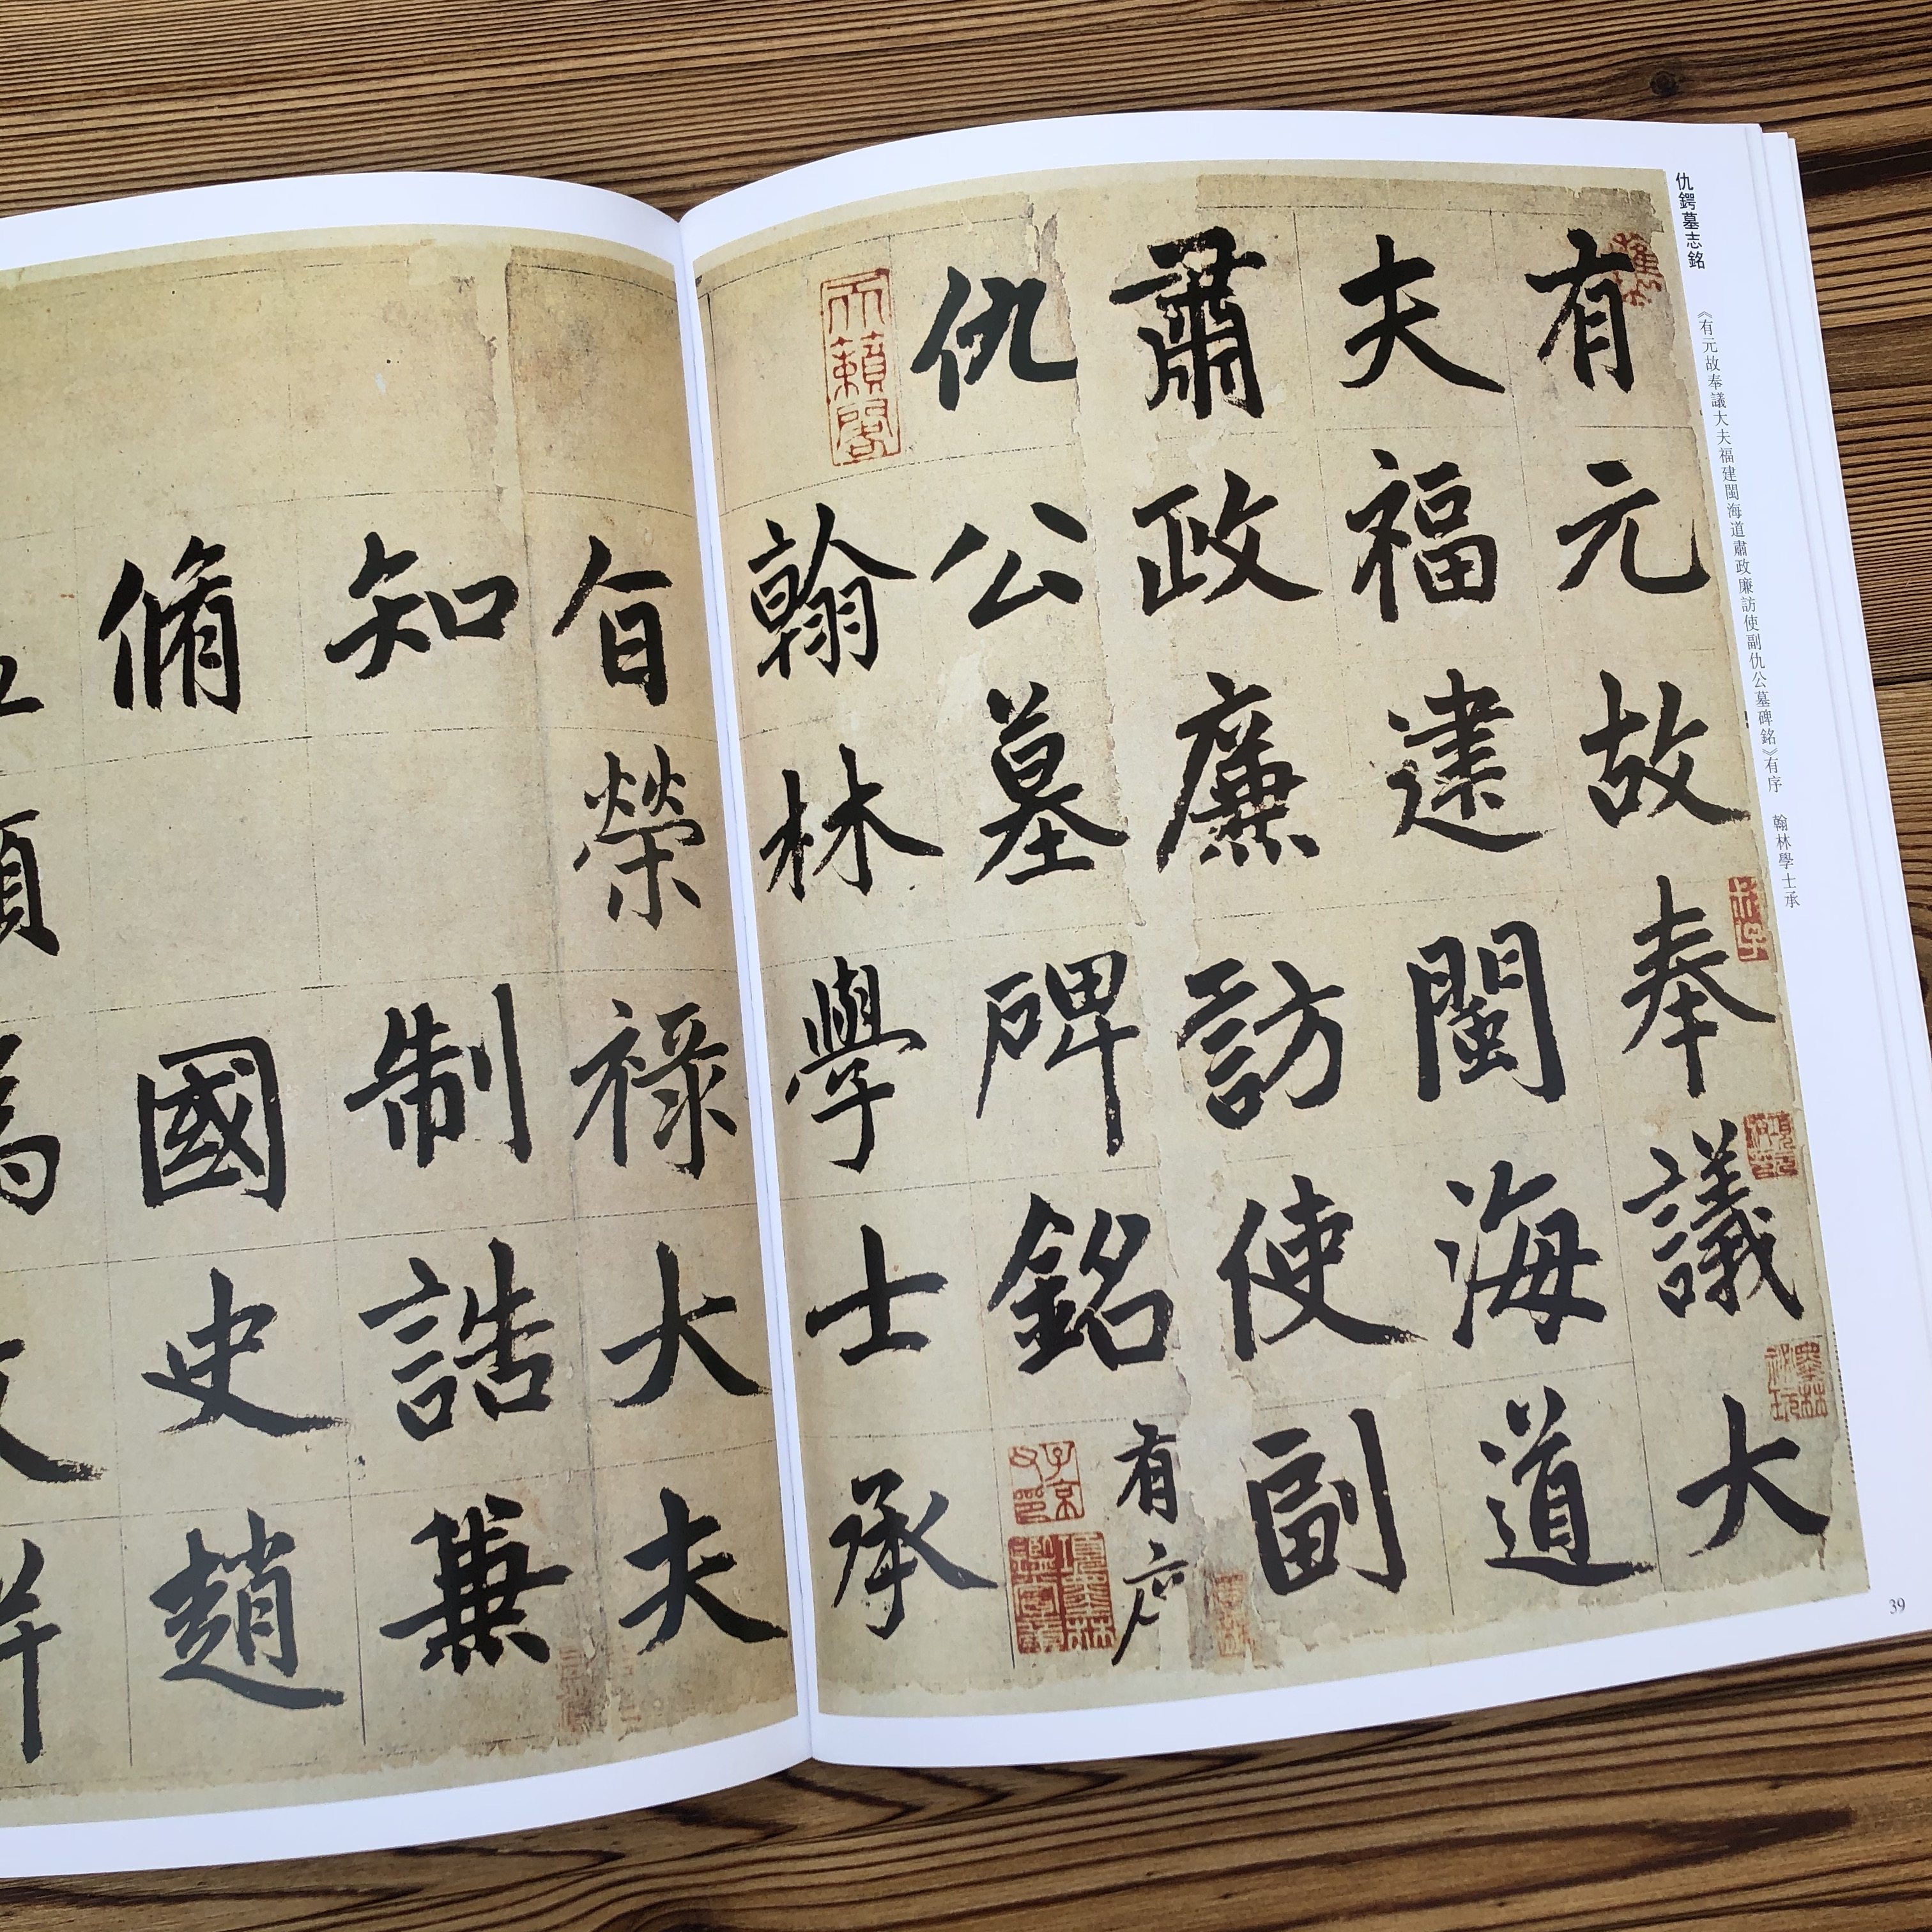 仇鍔墓志銘
《有元故奉議大夫福建閩海道肅政廉訪使副仇公墓碑銘》有序 翰林學士承
有元故奉議大
夫福建閩海道
肅政廉訪使副
仇公墓碑銘有序
天籟閣
子京父印
項墨林鑑賞章
翰林學士承
旨榮祿大夫
知制誥兼
脩國史趙
39